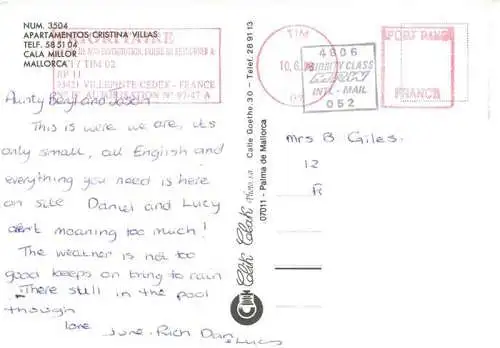 NUM. 3504
APARTAMENTOS CRISTINA VILLAS
TELF. 58 51 04
CALA MILLOR
MALLORCA
PRIORITAIRE
17 TIM 02
BP 11
95421 VILLEPINTE CEDEX - FRANCE
AUTORISATION N° 97-47 A
Aunty Beryl and Joseph
This is were we are, it's
only small, all English and
everything you need is here
on site Daniel and Lucy
aren't moaning too much!
The weather is not too
good keeps on tring to rain
There still in the pool
though
love June, Rich Dan
& Lucy
Clik Clak Photo, s.a. Calle Goethe 30 - Telef. 28 91 13
07011 - Palma de Mallorca
TIM
10.6.98
4806
PRIORITY CLASS
INTL-MAIL
052
PORT PAYE
FRANCE
Mrs B Giles.
12